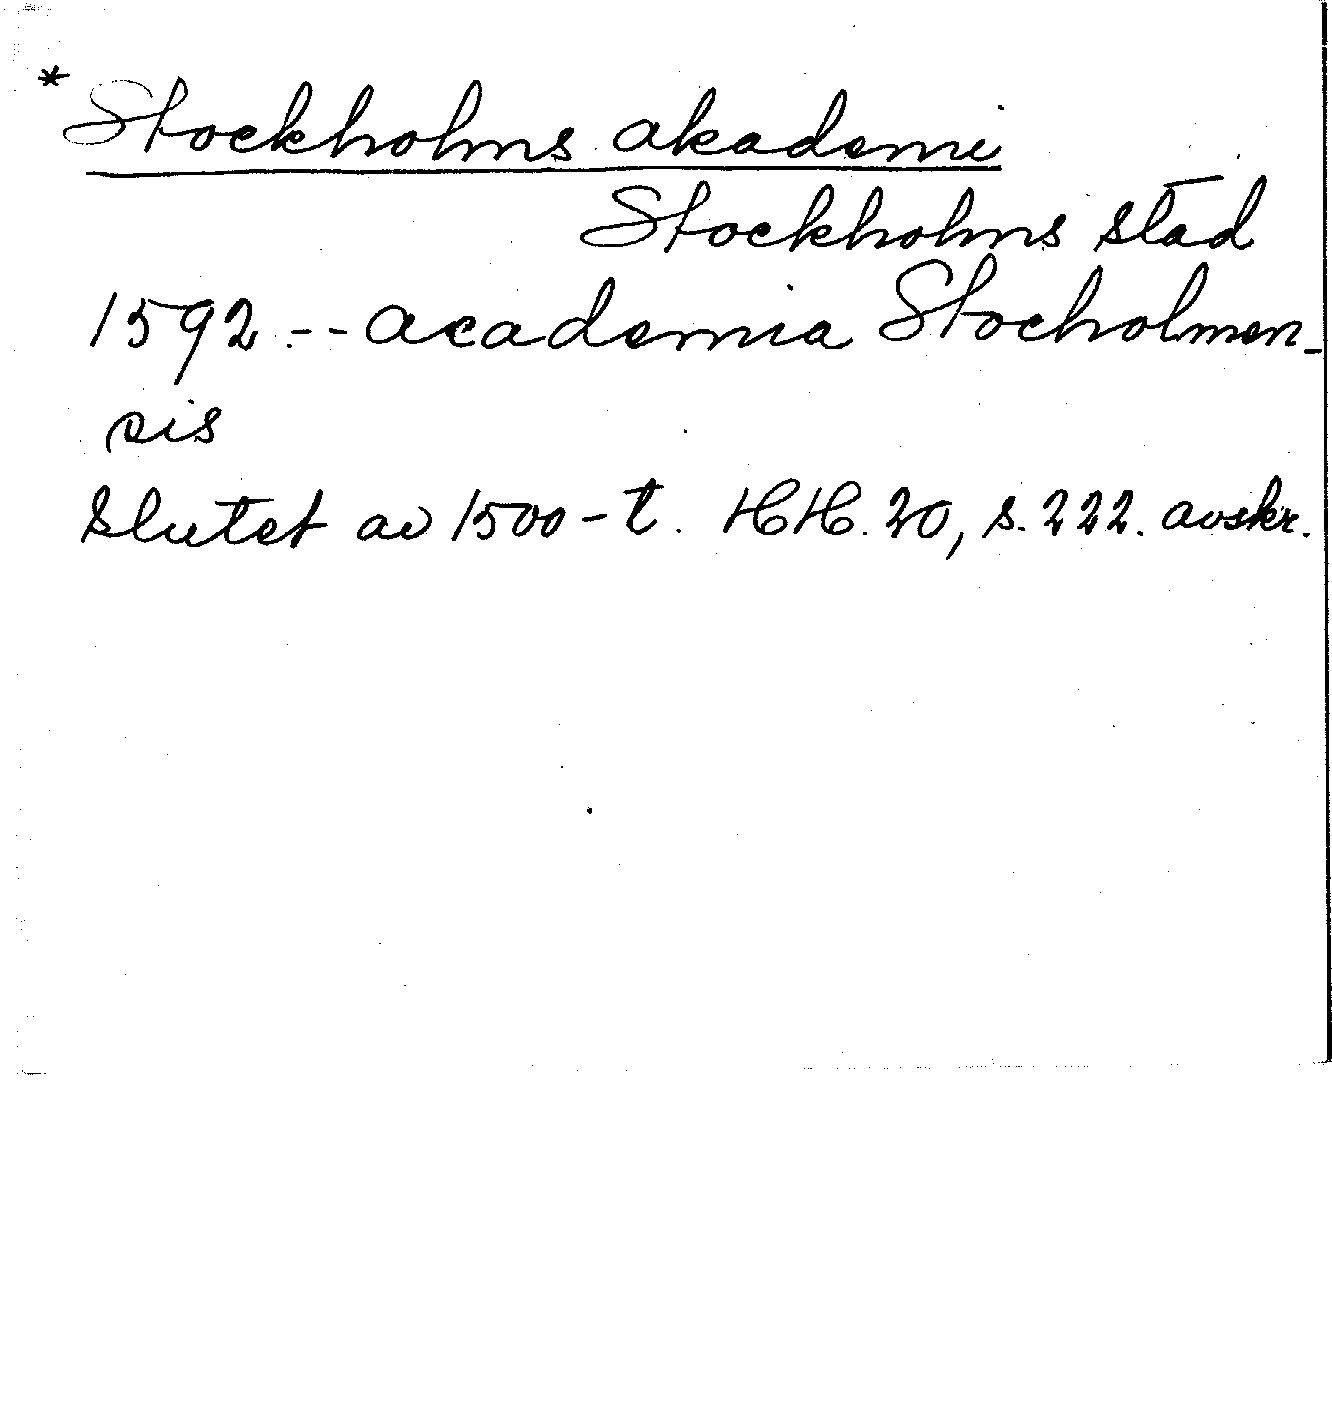 * Stockholms akademi
Stockholms stad
1592 -- academia Stocholmen-
sis
Slutet av 1500-t. HH. 20, s. 222. avskr.